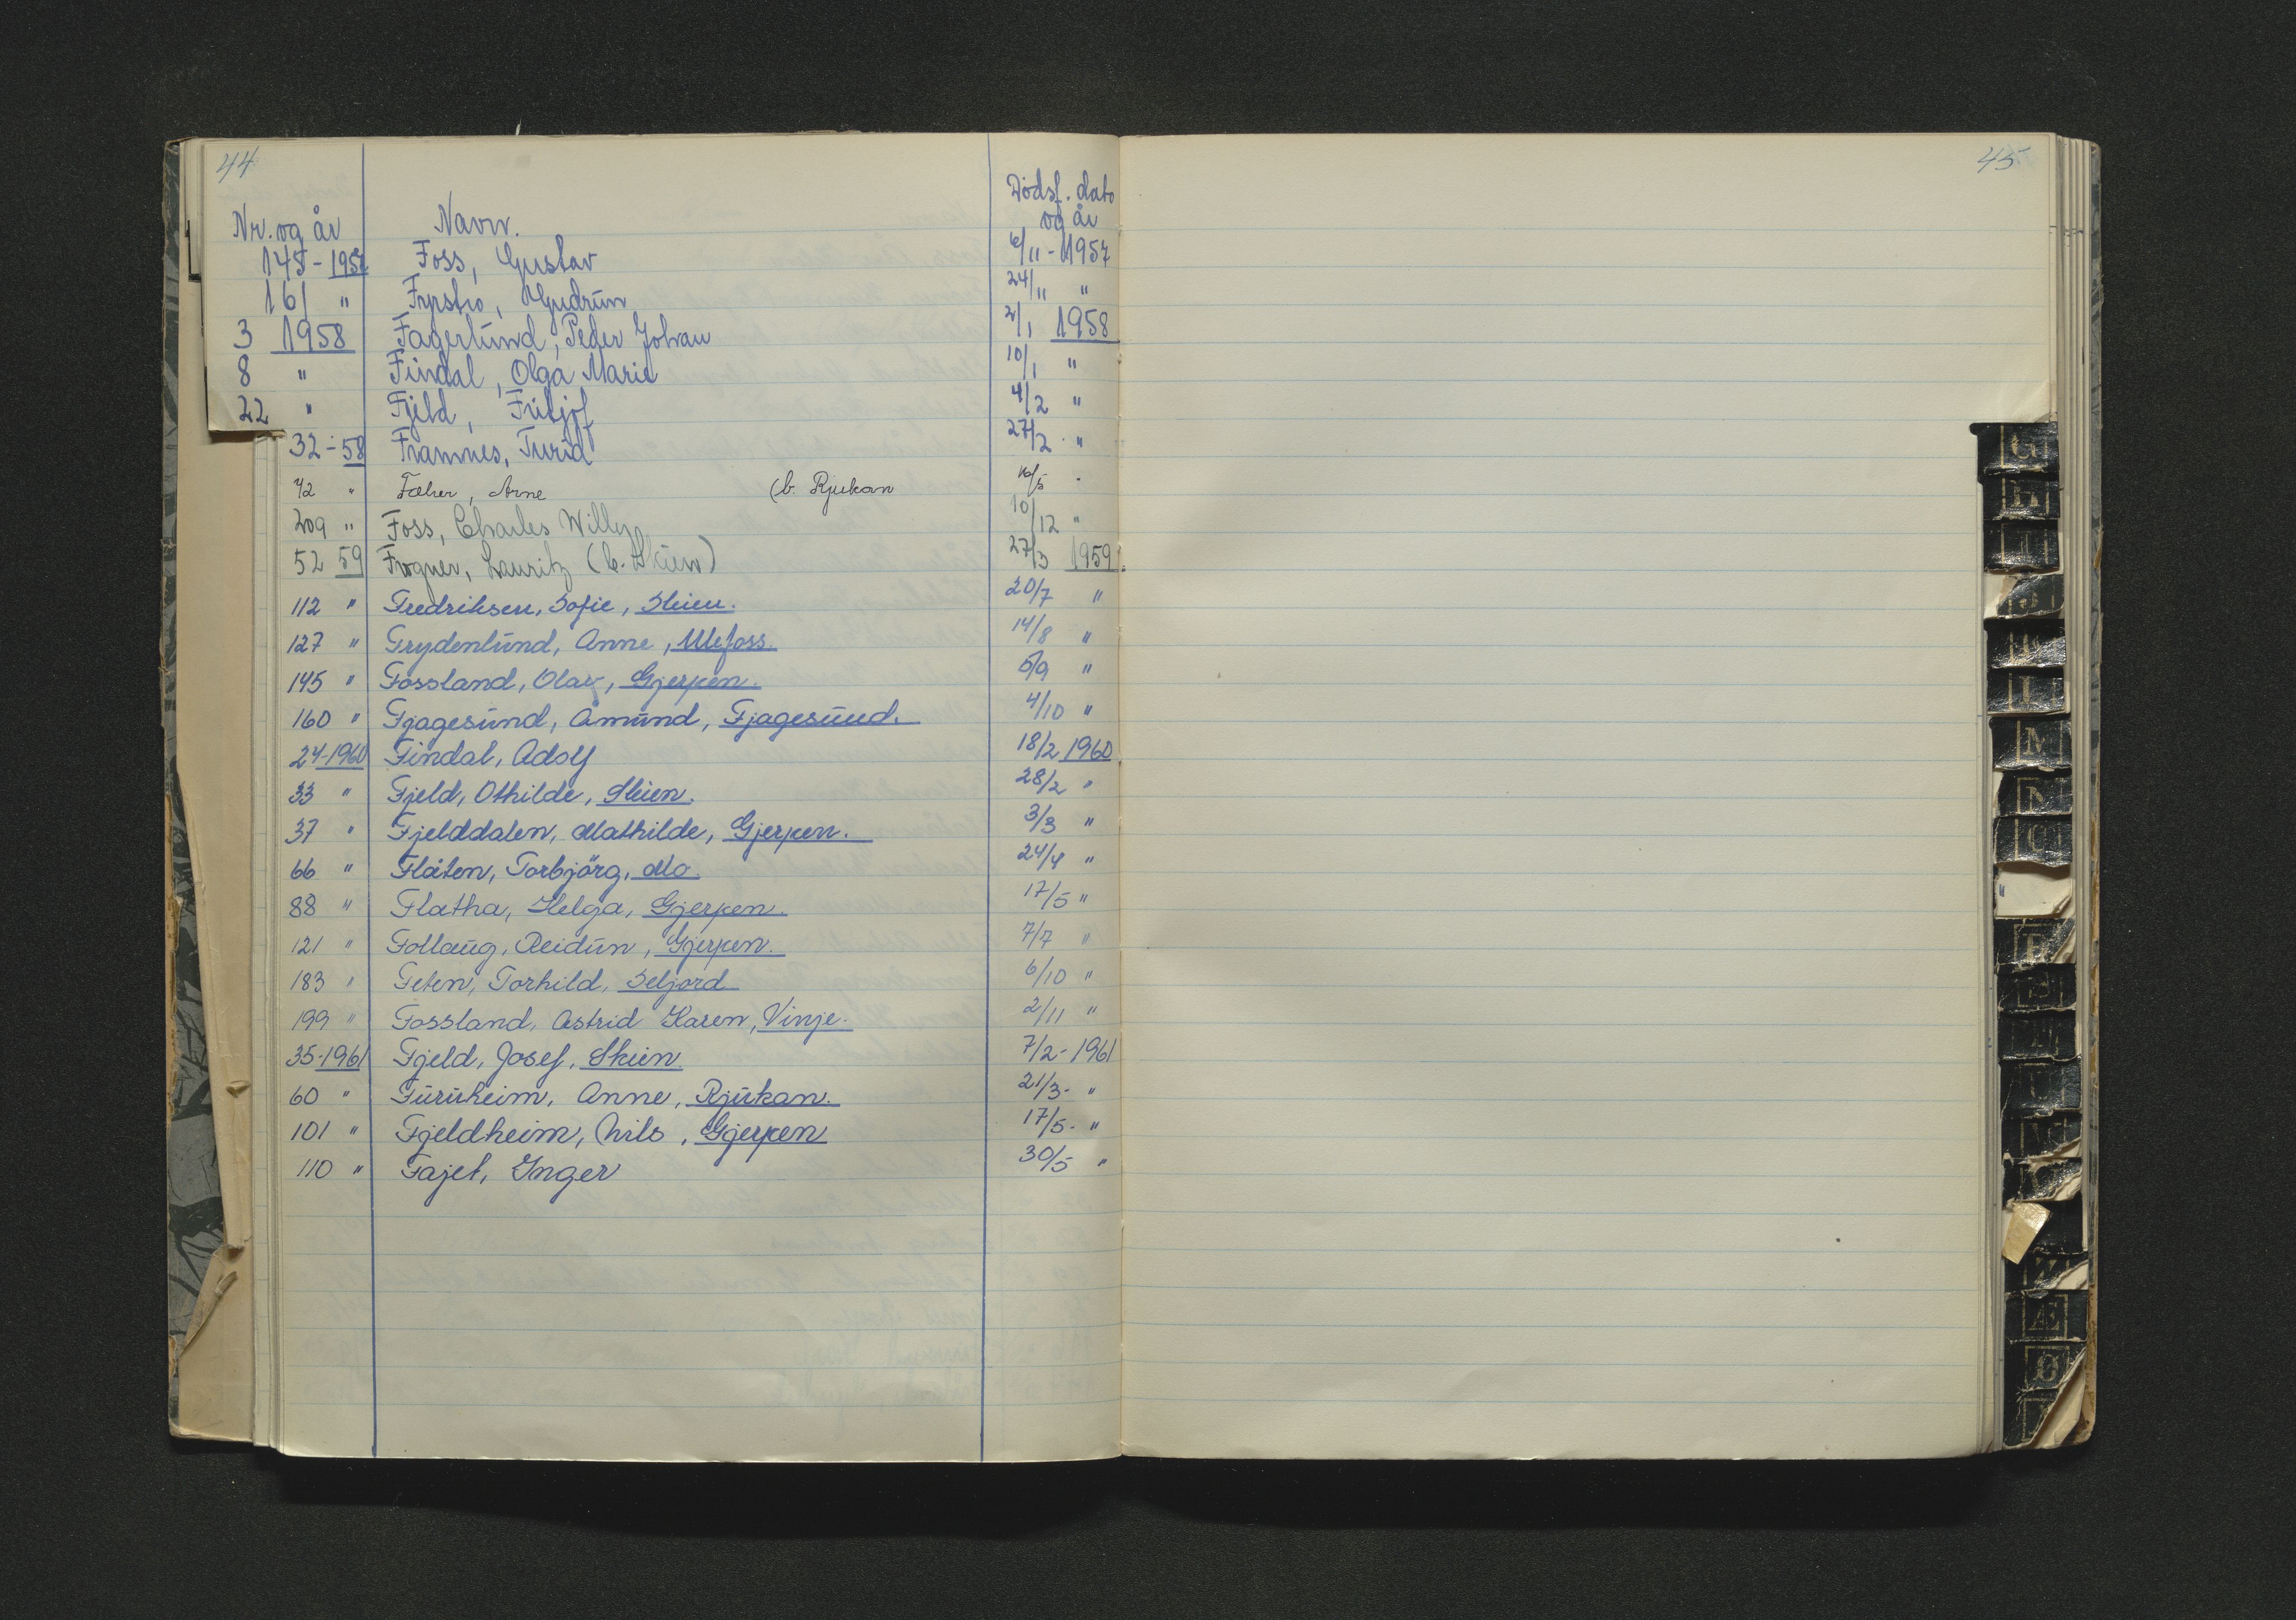 44
45
Nr. og år Navn. Dödsf. dato og år
145 - 1957 Foss, Gustav 6/11 - 1957
161 " Gudrun 24/11 "
3 1958 Fagerlund, Peder Johan 2/1 1958
8 " Findal, Olga Marie 10/1 "
22 " Fjeld, Fritjof 4/2 "
32 - 58 Framnes, Turid 27/2 "
72 " Arne (b. Rjukan
209 " Foss, Charles Willy 10/12 "
52 59 Frogner, Lauritz (b. Skien) 27/3 1959
112 " Fredriksen, Sofie, Skien. 20/7 "
127 " Frydenlund, Anne, Ulefoss. 14/8 "
145 " Fossland, Olav, Gjerpen. 5/9 "
160 " Fjagesund, Åmund, Fjagesund. 4/10 "
24-1960 Findal, Adolf 18/2 1960
33 " Fjeld, Othilde, Skien. 28/2 "
37 " Fjelddalen, Mathilde, Gjerpen. 3/3 "
66 " Flåten, Torbjörg, Mo. 24/4 "
88 " Flatha, Helga, Gjerpen. 17/5 "
121 " Follaug, Reidun, Gjerpen. 7/7 "
183 " Feten, Torhild, Seljord 6/10 "
199 " Fossland, Astrid Karen, Vinje. 2/11 "
35-1961 Fjeld, Josef, Skien. 7/2 - 1961
60 " Furuheim, Anne, Rjukan. 21/3 - "
101 " Fjeldheim, Nils, Gjerpen 17/5 - "
110 " Fajet, Inger 30/5 "
M
N
Æ
Ø